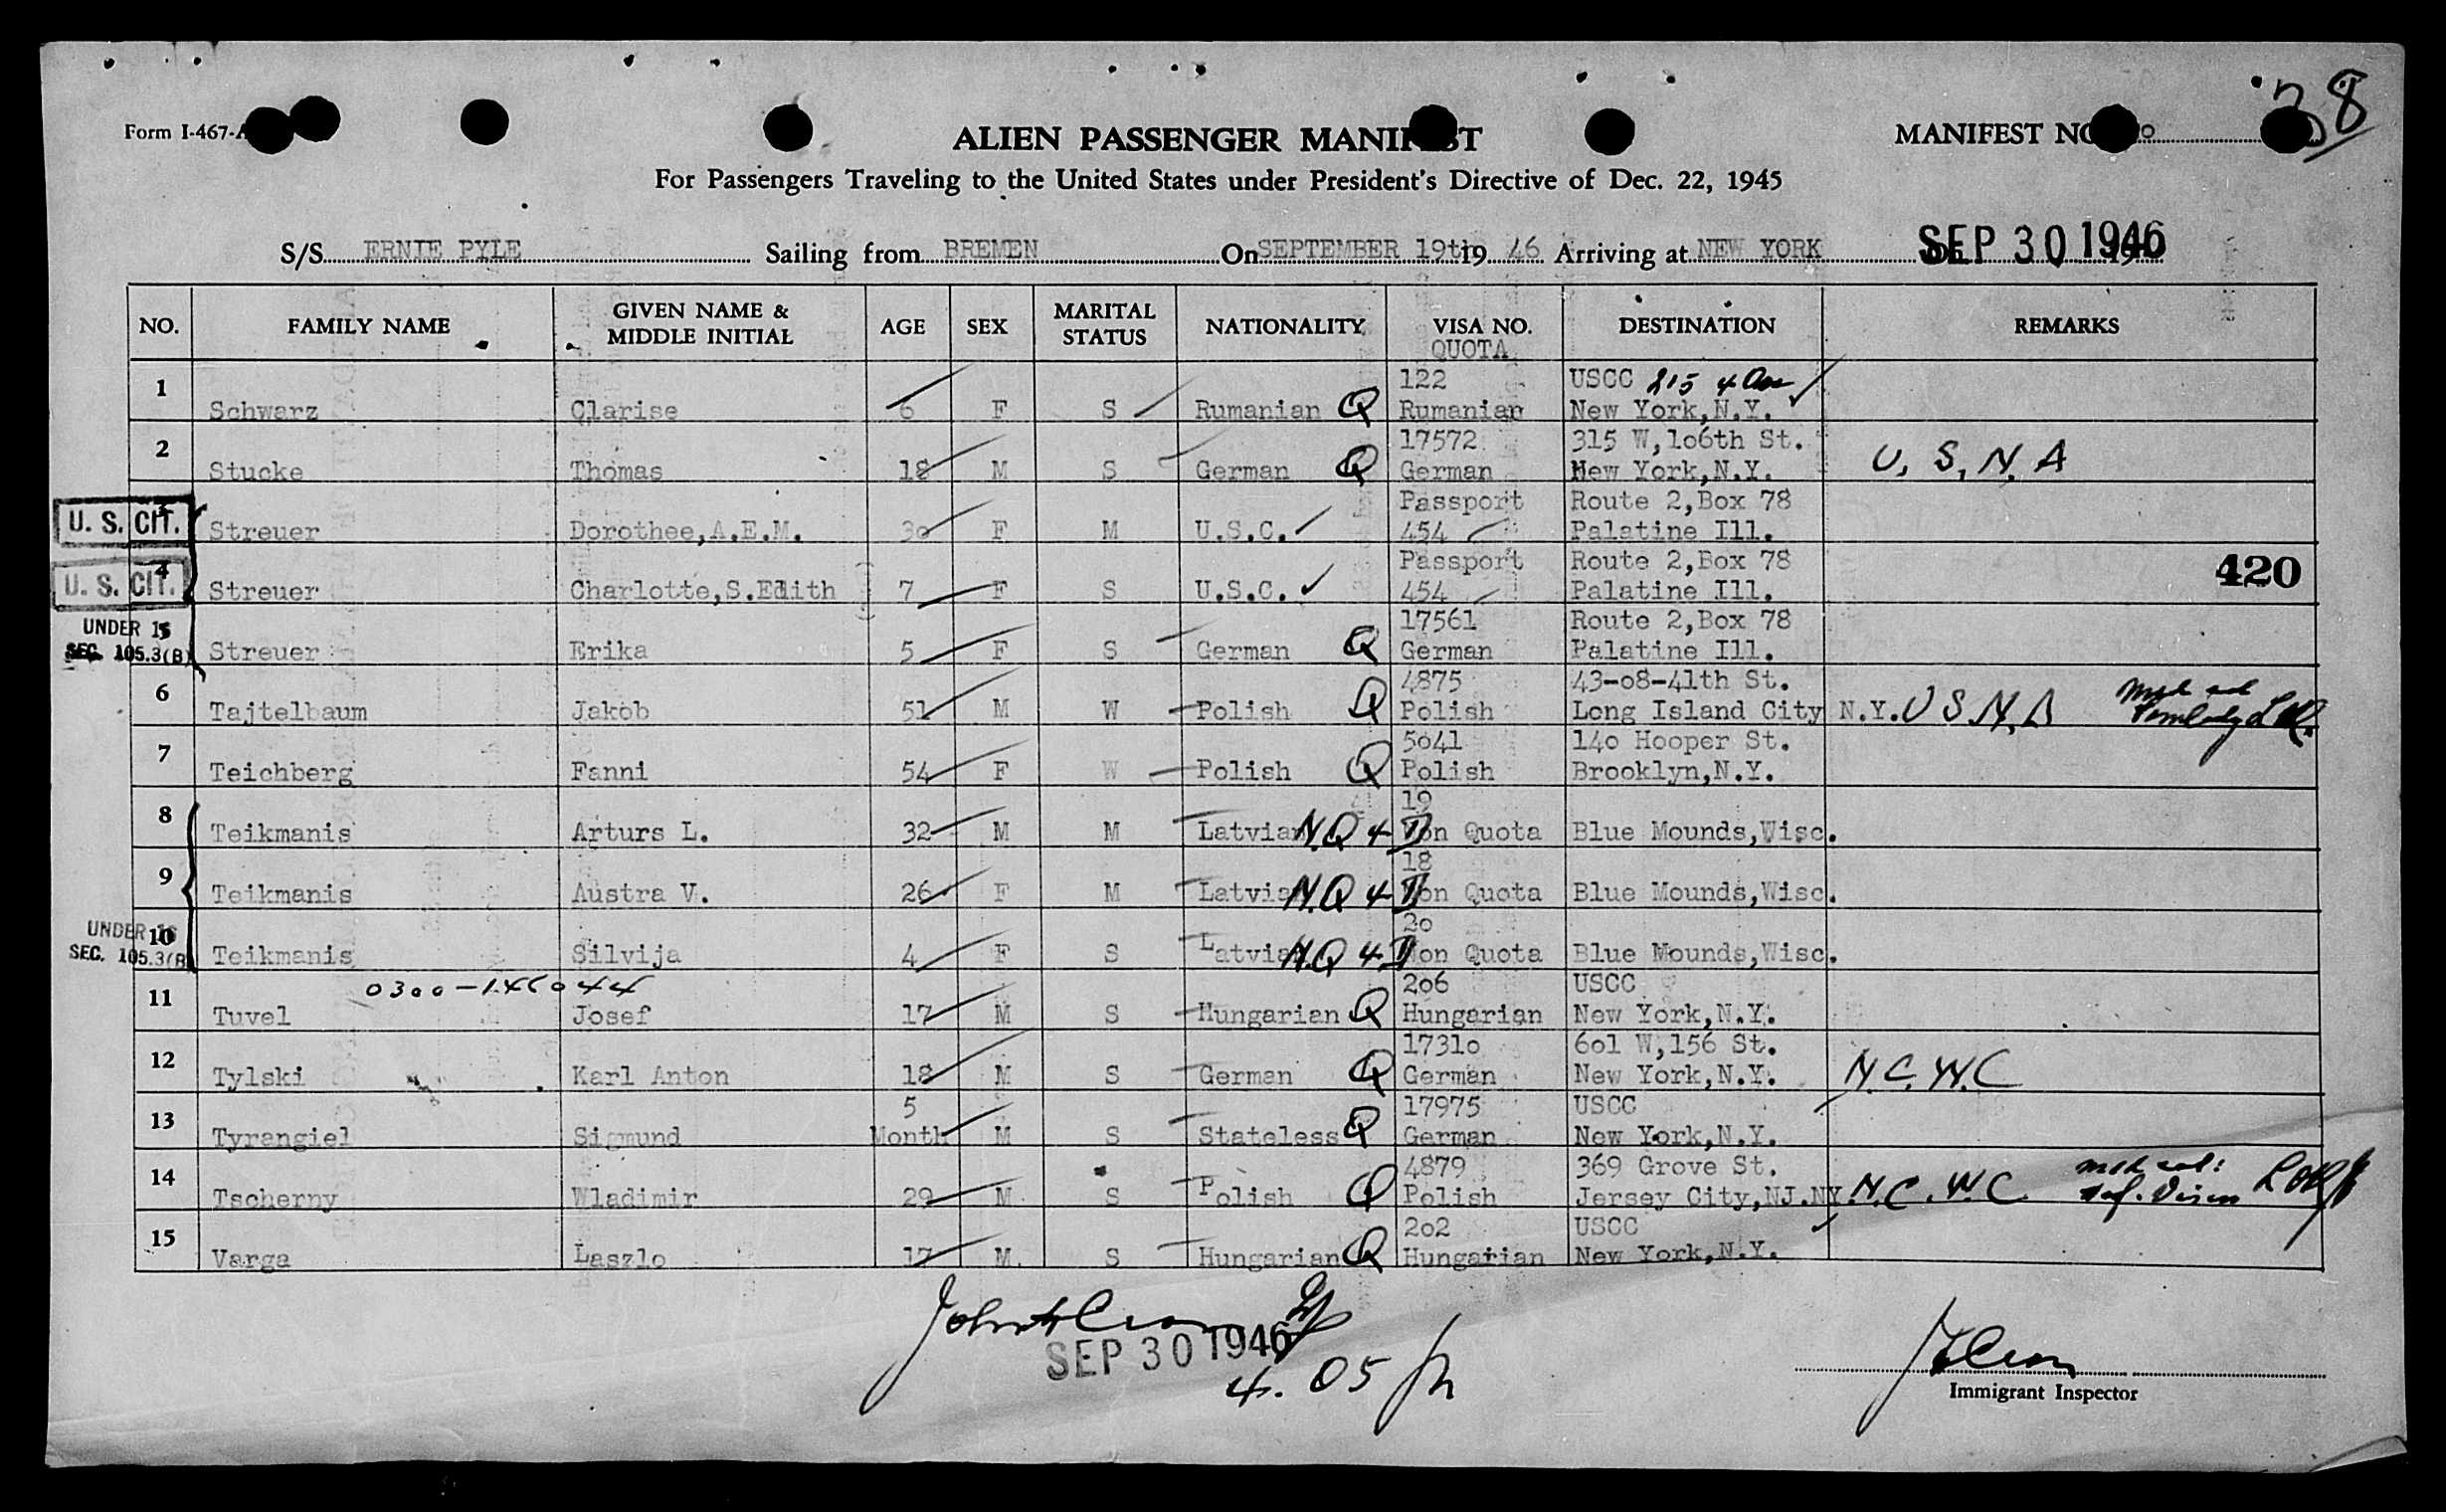 38
Form I-467-A
ALIEN PASSENGER MANIFEST
MANIFEST NO.
For Passengers Traveling to the United States under President's Directive of Dec. 22, 1945
S/S ERNIE PYLE Sailing from BREMEN On SEPTEMBER 19th 19 46 Arriving at NEW YORK SEP 30 1946
NO. FAMILY NAME GIVEN NAME & MIDDLE INITIAL AGE SEX MARITAL STATUS NATIONALITY VISA NO. QUOTA DESTINATION REMARKS
1 122 USCC 215 4 Ave
Schwarz Clarise 6 F S Rumanian Q Rumanian New York,N.Y.
2 17572 315 W,106th St.
Stucke Thomas 18 M S German Q German New York,N.Y. U.S.N.A
U. S. CIT. 3 Passport Route 2,Box 78
Streuer Dorothee,A.E.M. 30 F M U.S.C. 454 Palatine Ill.
U. S. CIT. 4 Passport Route 2,Box 78 420
Streuer Charlotte,S.Edith 7 F S U.S.C. 454 Palatine Ill.
UNDER 16 5 17561 Route 2,Box 78
SEC. 105.3(B) Streuer Erika 5 F S German Q German Palatine Ill.
6 4875 43-08-41th St.
Tajtelbaum Jakob 51 M W Polish Q Polish Long Island City N.Y. U S N A
7 5041 140 Hooper St.
Teichberg Fanni 54 F W Polish Q Polish Brooklyn,N.Y.
8 19
Teikmanis Arturs L. 32 M M Latvian N.Q 4 D Non Quota Blue Mounds,Wisc.
9 18
Teikmanis Austra V. 26 F M Latvian N.Q 4 D Non Quota Blue Mounds,Wisc.
UNDER 16 10 20
SEC. 105.3(B) Teikmanis Silvija 4 F S Latvian N.Q 4 D Non Quota Blue Mounds,Wisc.
11 0300-146044 206 USCC
Tuvel Josef 17 M S Hungarian Q Hungarian New York,N.Y.
12 17310 601 W,156 St.
Tylski Karl Anton 18 M S German Q German New York,N.Y. N.C.W.C
13 5 17975 USCC
Tyrangiel Sigmund Month M S Stateless Q German New York,N.Y.
14 4879 369 Grove St.
Tscherny Wladimir 29 M S Polish Q Polish Jersey City,NJ.NY. N.C.W.C
15 202 USCC
Varga Laszlo 17 M S Hungarian Q Hungarian New York,N.Y.
SEP 30 1946
4.05
Immigrant Inspector